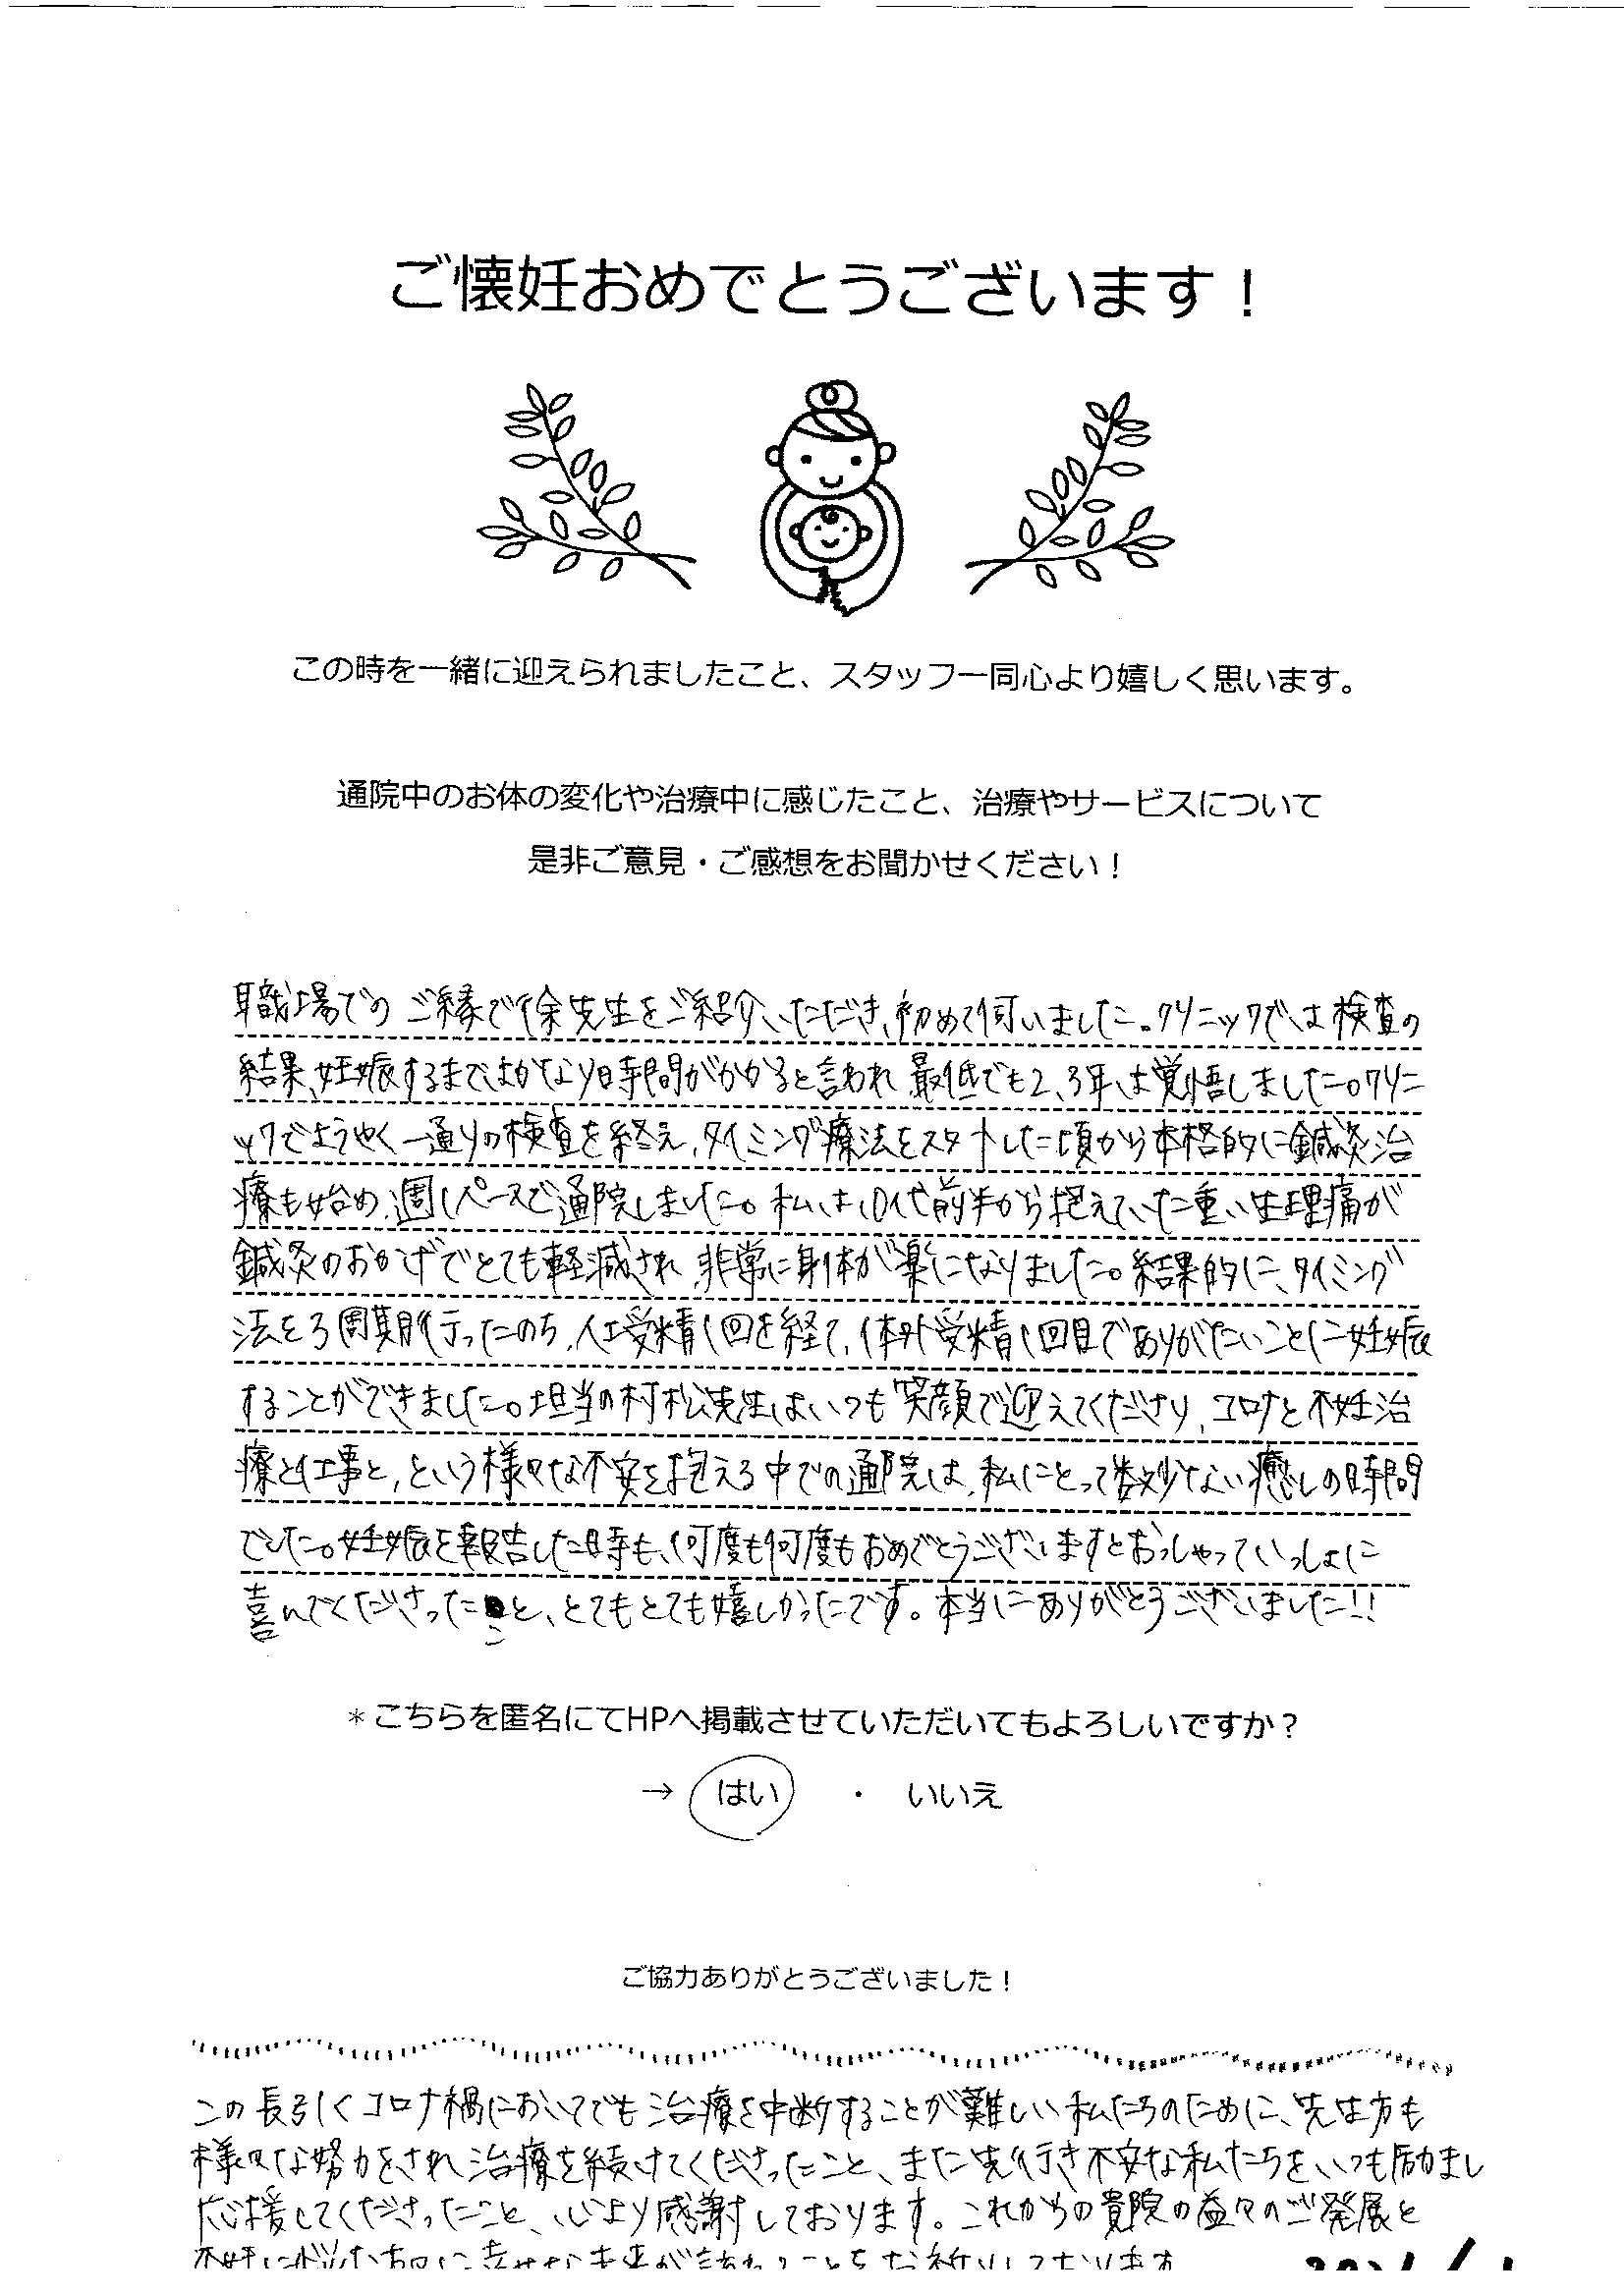 ご懐妊おめでとうございます！
この時を一緒に迎えられましたこと、スタッフ一同心より嬉しく思います。
通院中のお体の変化や治療中に感じたこと、治療やサービスについて
是非ご意見・ご感想をお聞かせください！
職場でのご縁で徐先生をご紹介いただき、初めて伺いました。クリニックでは検査の
結果、妊娠するまではかなり時間がかかると言われ、最低でも2、3年は覚悟しました。クリニ
ックでようやく一通りの検査を終え、タイミング療法をスタートした頃から本格的に鍼灸治
療も始め、週1ペースで通院しました。私は、10代前半から抱えていた重い生理痛が
鍼灸のおかげでとても軽減され、非常に身体が楽になりました。結果的に、タイミング
法を3周期行ったのち、人工受精1回を経て、体外受精1回目でありがたいことに妊娠
することができました。担当の村松先生はいつも笑顔で迎えてくださり、コロナと不妊治
療と仕事と、という様々な不安を抱える中での通院は、私にとって数少ない癒しの時間
でした。妊娠を報告した時も、何度も何度もおめでとうございますとおっしゃっていっしょに
喜んでくださったこと、とてもとても嬉しかったです。本当にありがとうございました!!
＊こちらを匿名にてHPへ掲載させていただいてもよろしいですか？
→ はい ・ いいえ
ご協力ありがとうございました！
この長引くコロナ禍においてでも治療を中断することが難しい私たちのために、先生方も
様々な努力をされ治療を続けてくださったこと、また先行き不安な私たちをいつも励まし
応援してくださったこと、心より感謝しております。これからの貴院の益々のご発展と